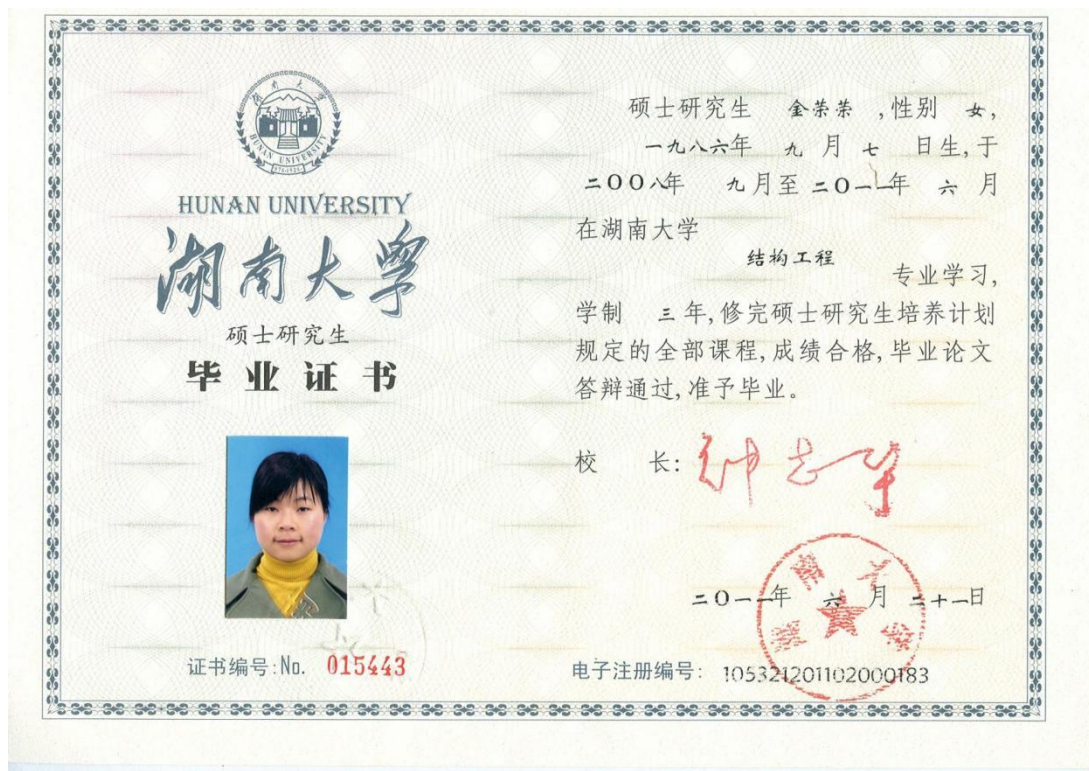 湖南大学
HUNAN UNIVERSITY
HUNAN UNIVERSITY
湖南大学
硕士研究生
毕业证书
证书编号:No. 015443
硕士研究生 金荣荣 ,性别 女,
一九八六年 九 月 七 日生,于
二00八年 九月至 二0一一年 六 月
在湖南大学
结构工程
专业学习,
学制 三 年,修完硕士研究生培养计划
规定的全部课程,成绩合格,毕业论文
答辩通过,准予毕业。
校 长: 钟志华
二0一一年 六 月 二十一日
湖南大学
电子注册编号: 105321201102000183